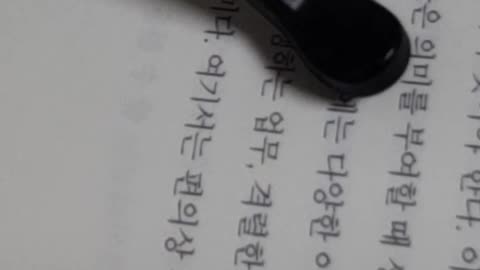 야 한다. 이
은 의미를 부여할 때
에는 다양한
하는 업무, 격렬한
이다. 여기서는 편의상